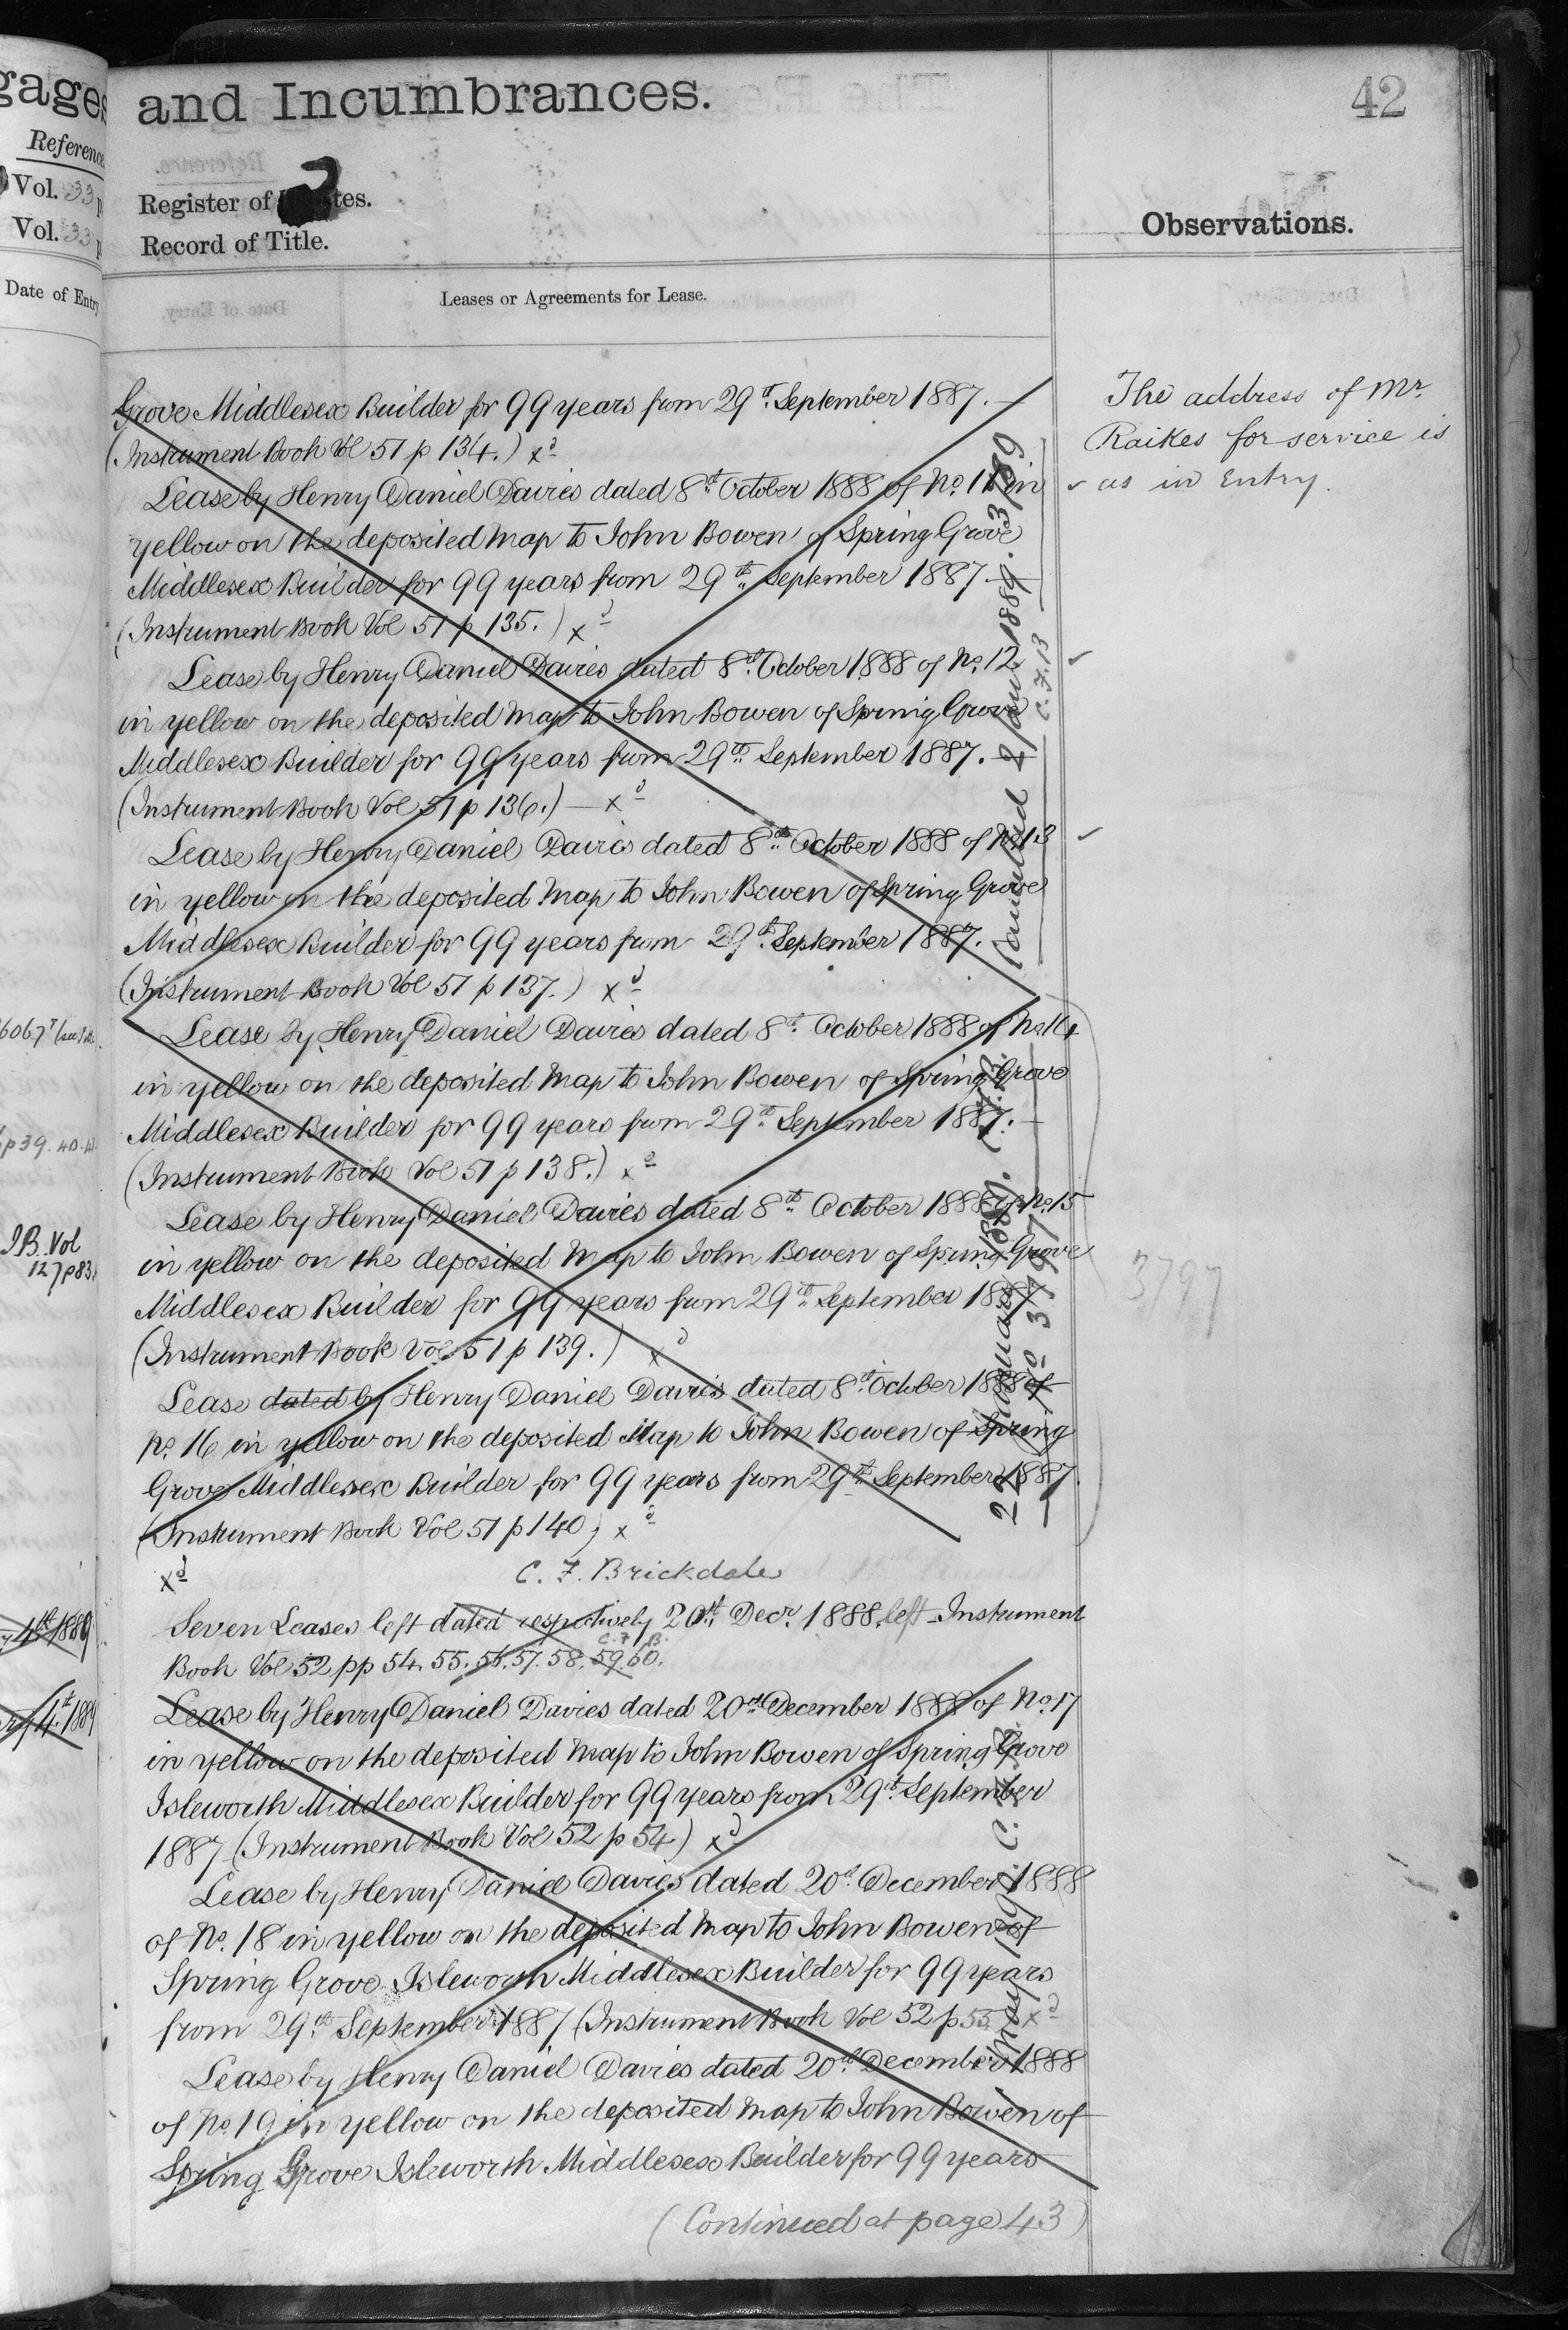 gages
Reference
Vol. 33 p
Vol. 33 p
Date of Entry
6067
p39. 40. 41
I.B. Vol
127 p 83
4th 1889
4th 1889
and Incumbrances.
42
Register of
tes.
Record of Title.
Observations.
Leases or Agreements for Lease.
Grove Middlesex Builder for 99 years from 29th September 1887. —
(Instrument Book Vol 51 p 134.) xd
Lease by Henry Daniel Davies dated 8th October 1888 of No. 11 in
yellow on the deposited Map to John Bowen of Spring Grove
Middlesex Builder for 99 years from 29th September 1887. —
(Instrument Book Vol 51 p 135.) xd
Lease by Henry Daniel Davies dated 8th October 1888 of No. 12
in yellow on the deposited Map to John Bowen of Spring Grove
Middlesex Builder for 99 years from 29th September 1887. —
(Instrument Book Vol 51 p 136.) — xd
Lease by Henry Daniel Davies dated 8th October 1888 of No. 13
in yellow on the deposited Map to John Bowen of Spring Grove
Middlesex Builder for 99 years from 29th September 1887.
(Instrument Book Vol 51 p 137.) xd
Lease by Henry Daniel Davies dated 8th October 1888 of No. 14
in yellow on the deposited Map to John Bowen of Spring Grove
Middlesex Builder for 99 years from 29th September 1887. —
(Instrument Book Vol 51 p 138.) xd
Lease by Henry Daniel Davies dated 8th October 1888 of No. 15
in yellow on the deposited Map to John Bowen of Spring Grove
Middlesex Builder for 99 years from 29th September 1887
(Instrument Book Vol 51 p 139.) xd
Lease dated by Henry Daniel Davies dated 8th October 1888 of
No. 16 in yellow on the deposited Map to John Bowen of Spring
Grove Middlesex Builder for 99 years from 29th September 1887.
(Instrument Book Vol 51 p 140) xd
xd C. F. Brickdale
Seven Leases left dated respectively 20th Decr. 1888 left Instrument
C. F. B.
Book Vol 52 pp 54. 55. 56. 57. 58. 59. 60.
Lease by Henry Daniel Davies dated 20th December 1888 of No. 17
in yellow on the deposited Map to John Bowen of Spring Grove
Isleworth Middlesex Builder for 99 years from 29th September
1887 (Instrument Book Vol 52 p 54) xd
Lease by Henry Daniel Davies dated 20th December 1888
of No. 18 in yellow on the deposited Map to John Bowen of
Spring Grove Isleworth Middlesex Builder for 99 years
from 29th September 1887 (Instrument Book Vol 52 p 55 xd
Lease by Henry Daniel Davies dated 20th December 1888
of No. 19 in yellow on the deposited Map to John Bowen of
Spring Grove Isleworth Middlesex Builder for 99 years
(Continued at page 43)
Cancelled 2 Jan 1889. 3789
C. F. B
22 January 1889. C. F. B.
No 3797
May C. F. B.
The address of Mr.
Raikes for service is
as in Entry.
3797